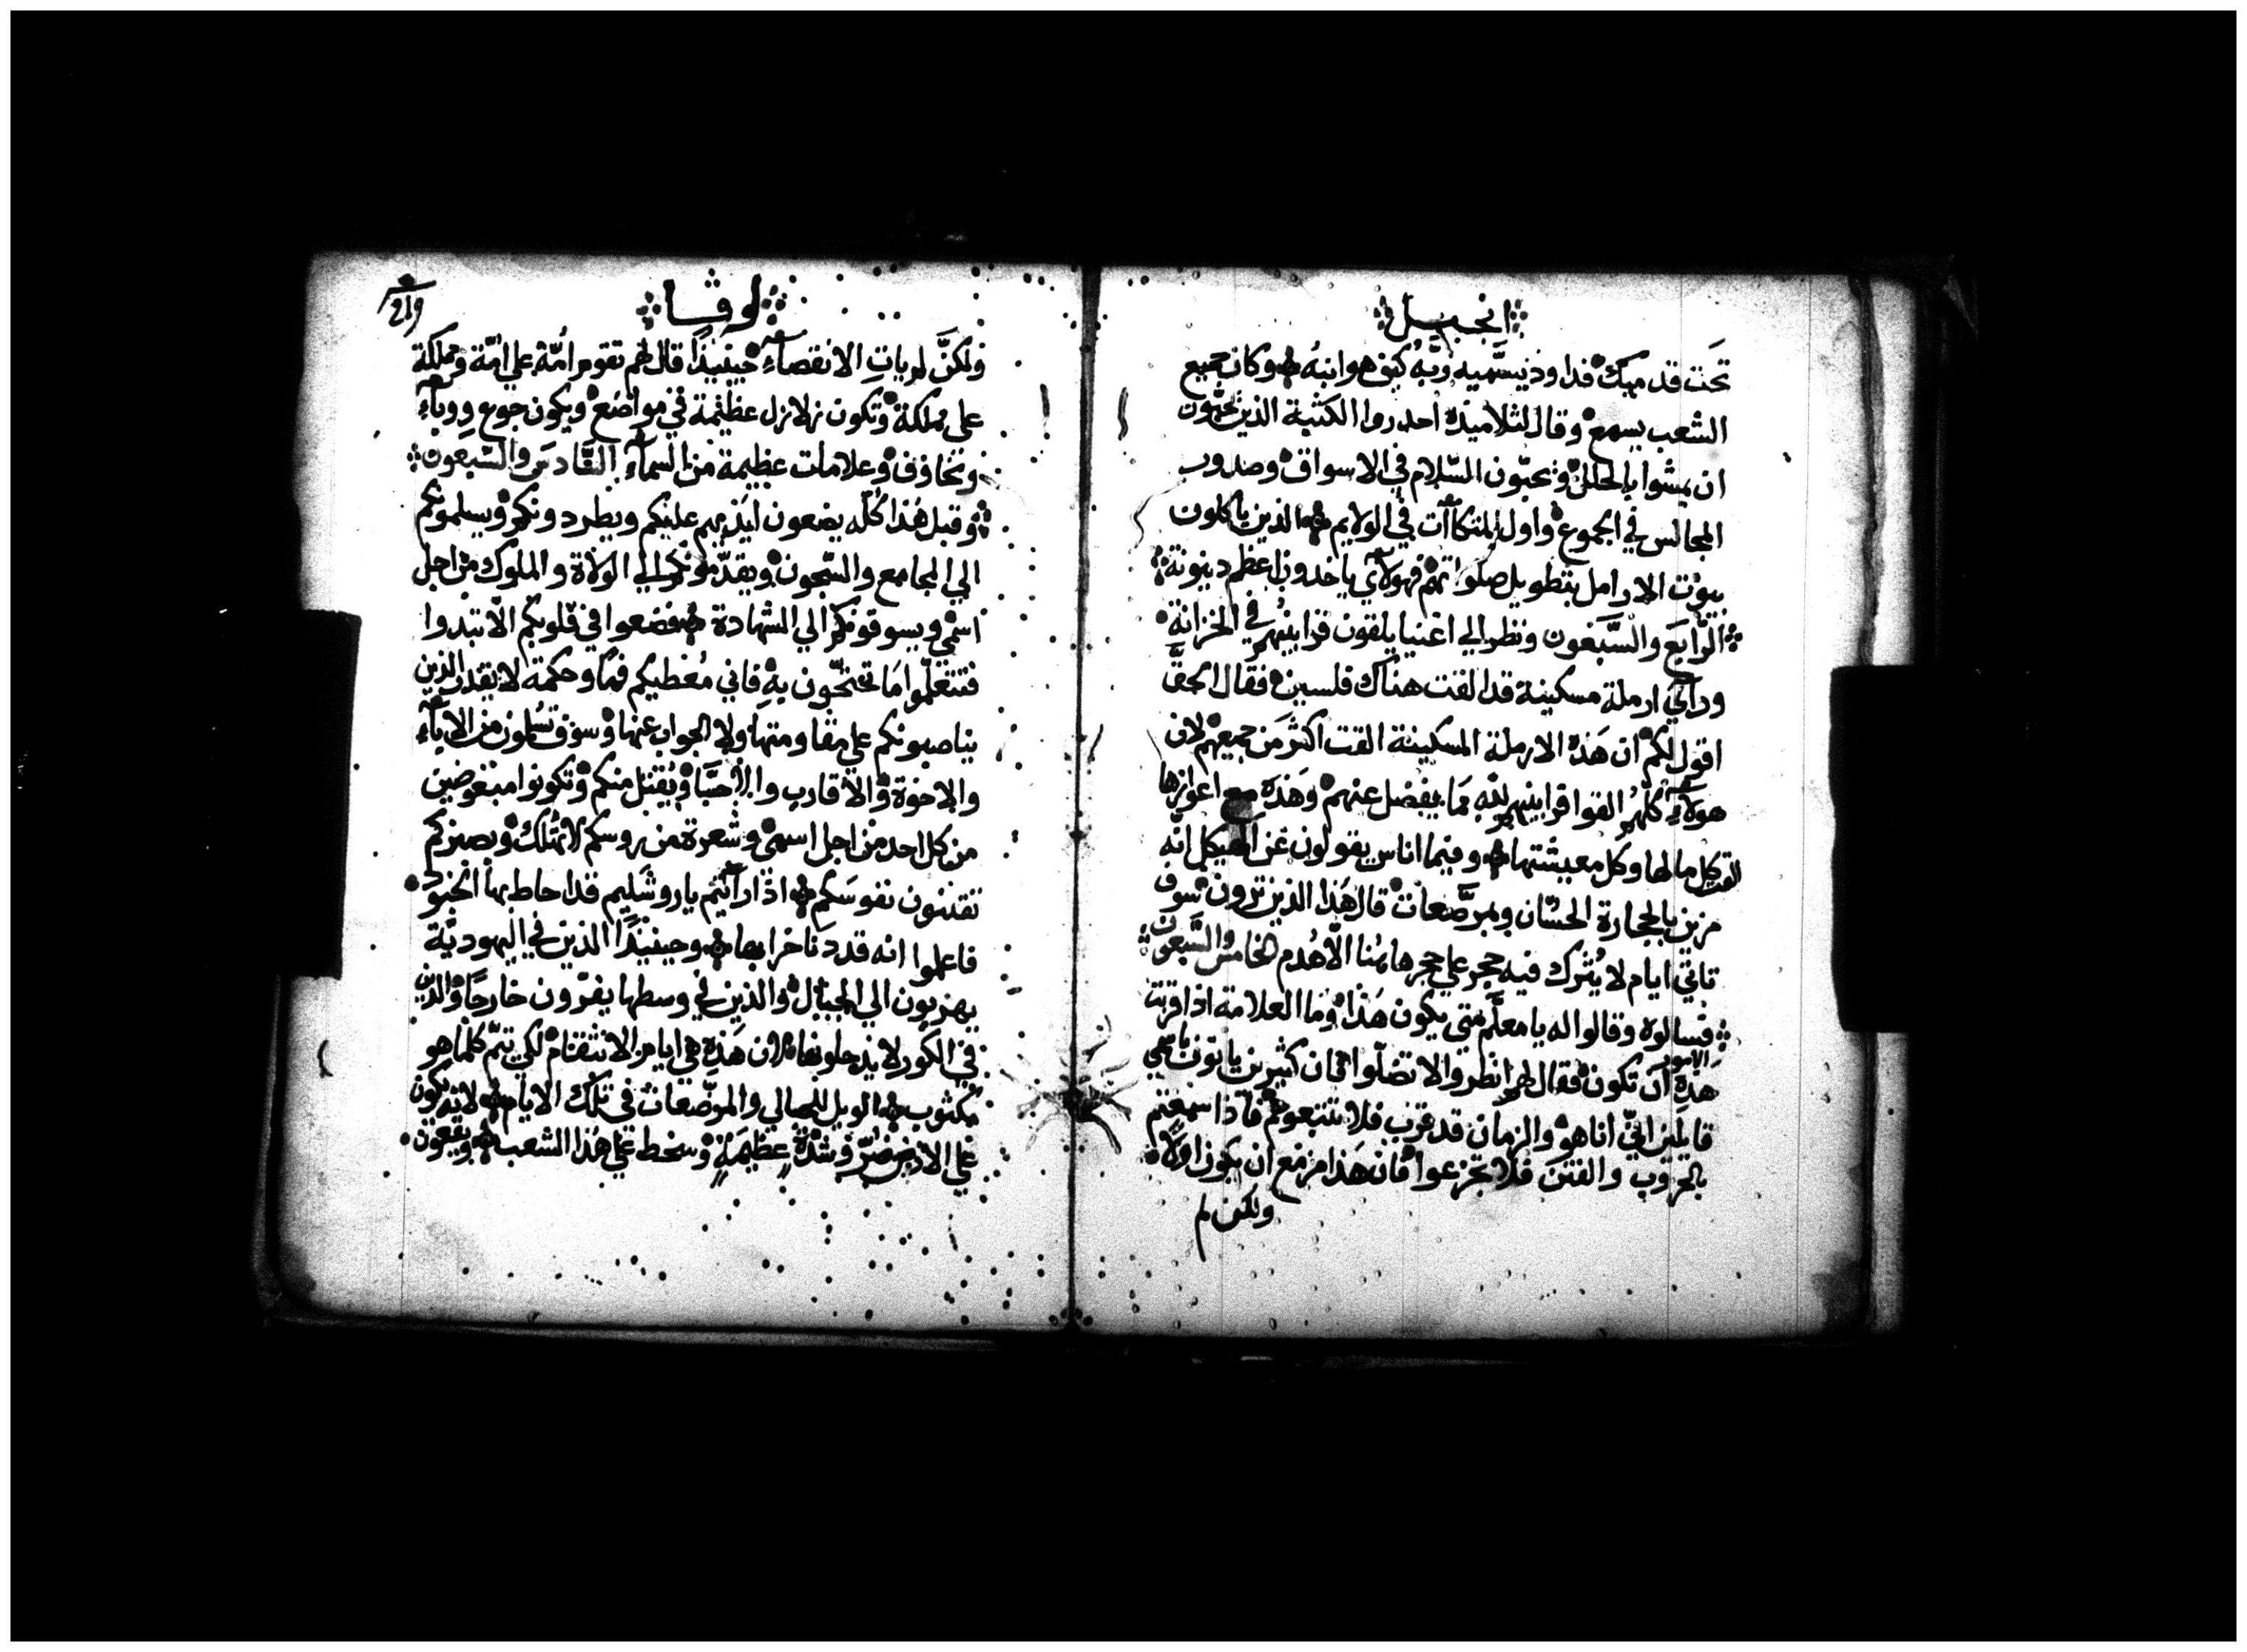 انجيل
تحت قدميك فداود يسميه ربه كيف هو ابنه وكان جميع
الشعب يسمع وقال لتلاميذه احدروا الكتبة الذين يحبون
ان يمشوا بالحلل ويحبون السلام في الاسواق وصدور
المجالس في الجموع واول المتكاآت في الولايم الذين ياكلون
بيوت الارامل بتطويل صلواتهم فهولآي ياخدون اعظم دينونة
الرابع والسبعون ونظر الي اغنيا يلقون قرابينهم في الخزانة
وراي ارملة مسكينة قد القت هناك فلسين فقال الحق
اقول لكم ان هذه الارملة المسكينة القت اكثر من جميعهم لان
هولآء كلهم القوا قرابينهم لله مما يفضل عنهم وهذه مع اعوازها
القت كل مالها وكل معيشتها وفيما اناس يقولون عن الهيكل انه
مزين بالحجارة الحسان وبمرصعات قال هذا الذين ترون سوف
تاتي ايام لا يترك فيه حجر علي حجر هاهنا الا هدم الخامس والسبعون
فسالوه وقالوا له يا معلم متي يكون هذا وما العلامة اذا قربت
هذه الامور ان تكون فقال لهم انظروا لا تضلوا فان كثيرين ياتون باسمي
قايلين اني انا هو والزمان قد قرب فلا تتبعوهم فاذا سمعتم
بالحروب والفتن فلا تجزعوا فان هذا مزمع ان يكون اولا
ولكن لم
لوقا
219
ولكن لم يات الانقصآء حينيذا قال لهم تقوم امة علي امة ومملكة
علي مملكة وتكون زلازل عظيمة في مواضع ويكون جوع ووبآء
ومخاوف وعلامات عظيمة من السمآء السادس والسبعون
وقبل هذا كله يضعون ايديهم عليكم ويطردونكم ويسلمونكم
الي المجامع والسجون ويقدمونكم الي الولاة والملوك من اجل
اسمي ويسوقونكم الي الشهادة فضعوا في قلوبكم الا تبدوا
فتتعلموا ما تحتجون به فاني معطيكم فما وحكمة لا يقدر الذين
يناصبونكم علي مقاومتها ولا الجواب عنها وسوف تسلمون من الابآء
والاخوة والاقارب والاحبا ويقتل منكم وتكونوا مبغوضين
من كل احد من اجل اسمي وشعرة من روسكم لا تهلك وبصبركم
تقتنون نفوسكم اذا رآيتم ياروشليم قد احاط بها الجنود
فاعلموا انه قد دنا خرابها وحينيذا الذين في اليهودية
يهربون الي الجبال والذين في وسطها يفرون خارجا والذين
في الكور لا يدخلونها لان هذه هي ايام الانتقام لكي يتم كلما هو
مكتوب الويل للحبالي والمرضعات في تلك الايام لانه يكون
علي الارض ضر وشدة عظيمة وسخط علي هذا الشعب ويقعون